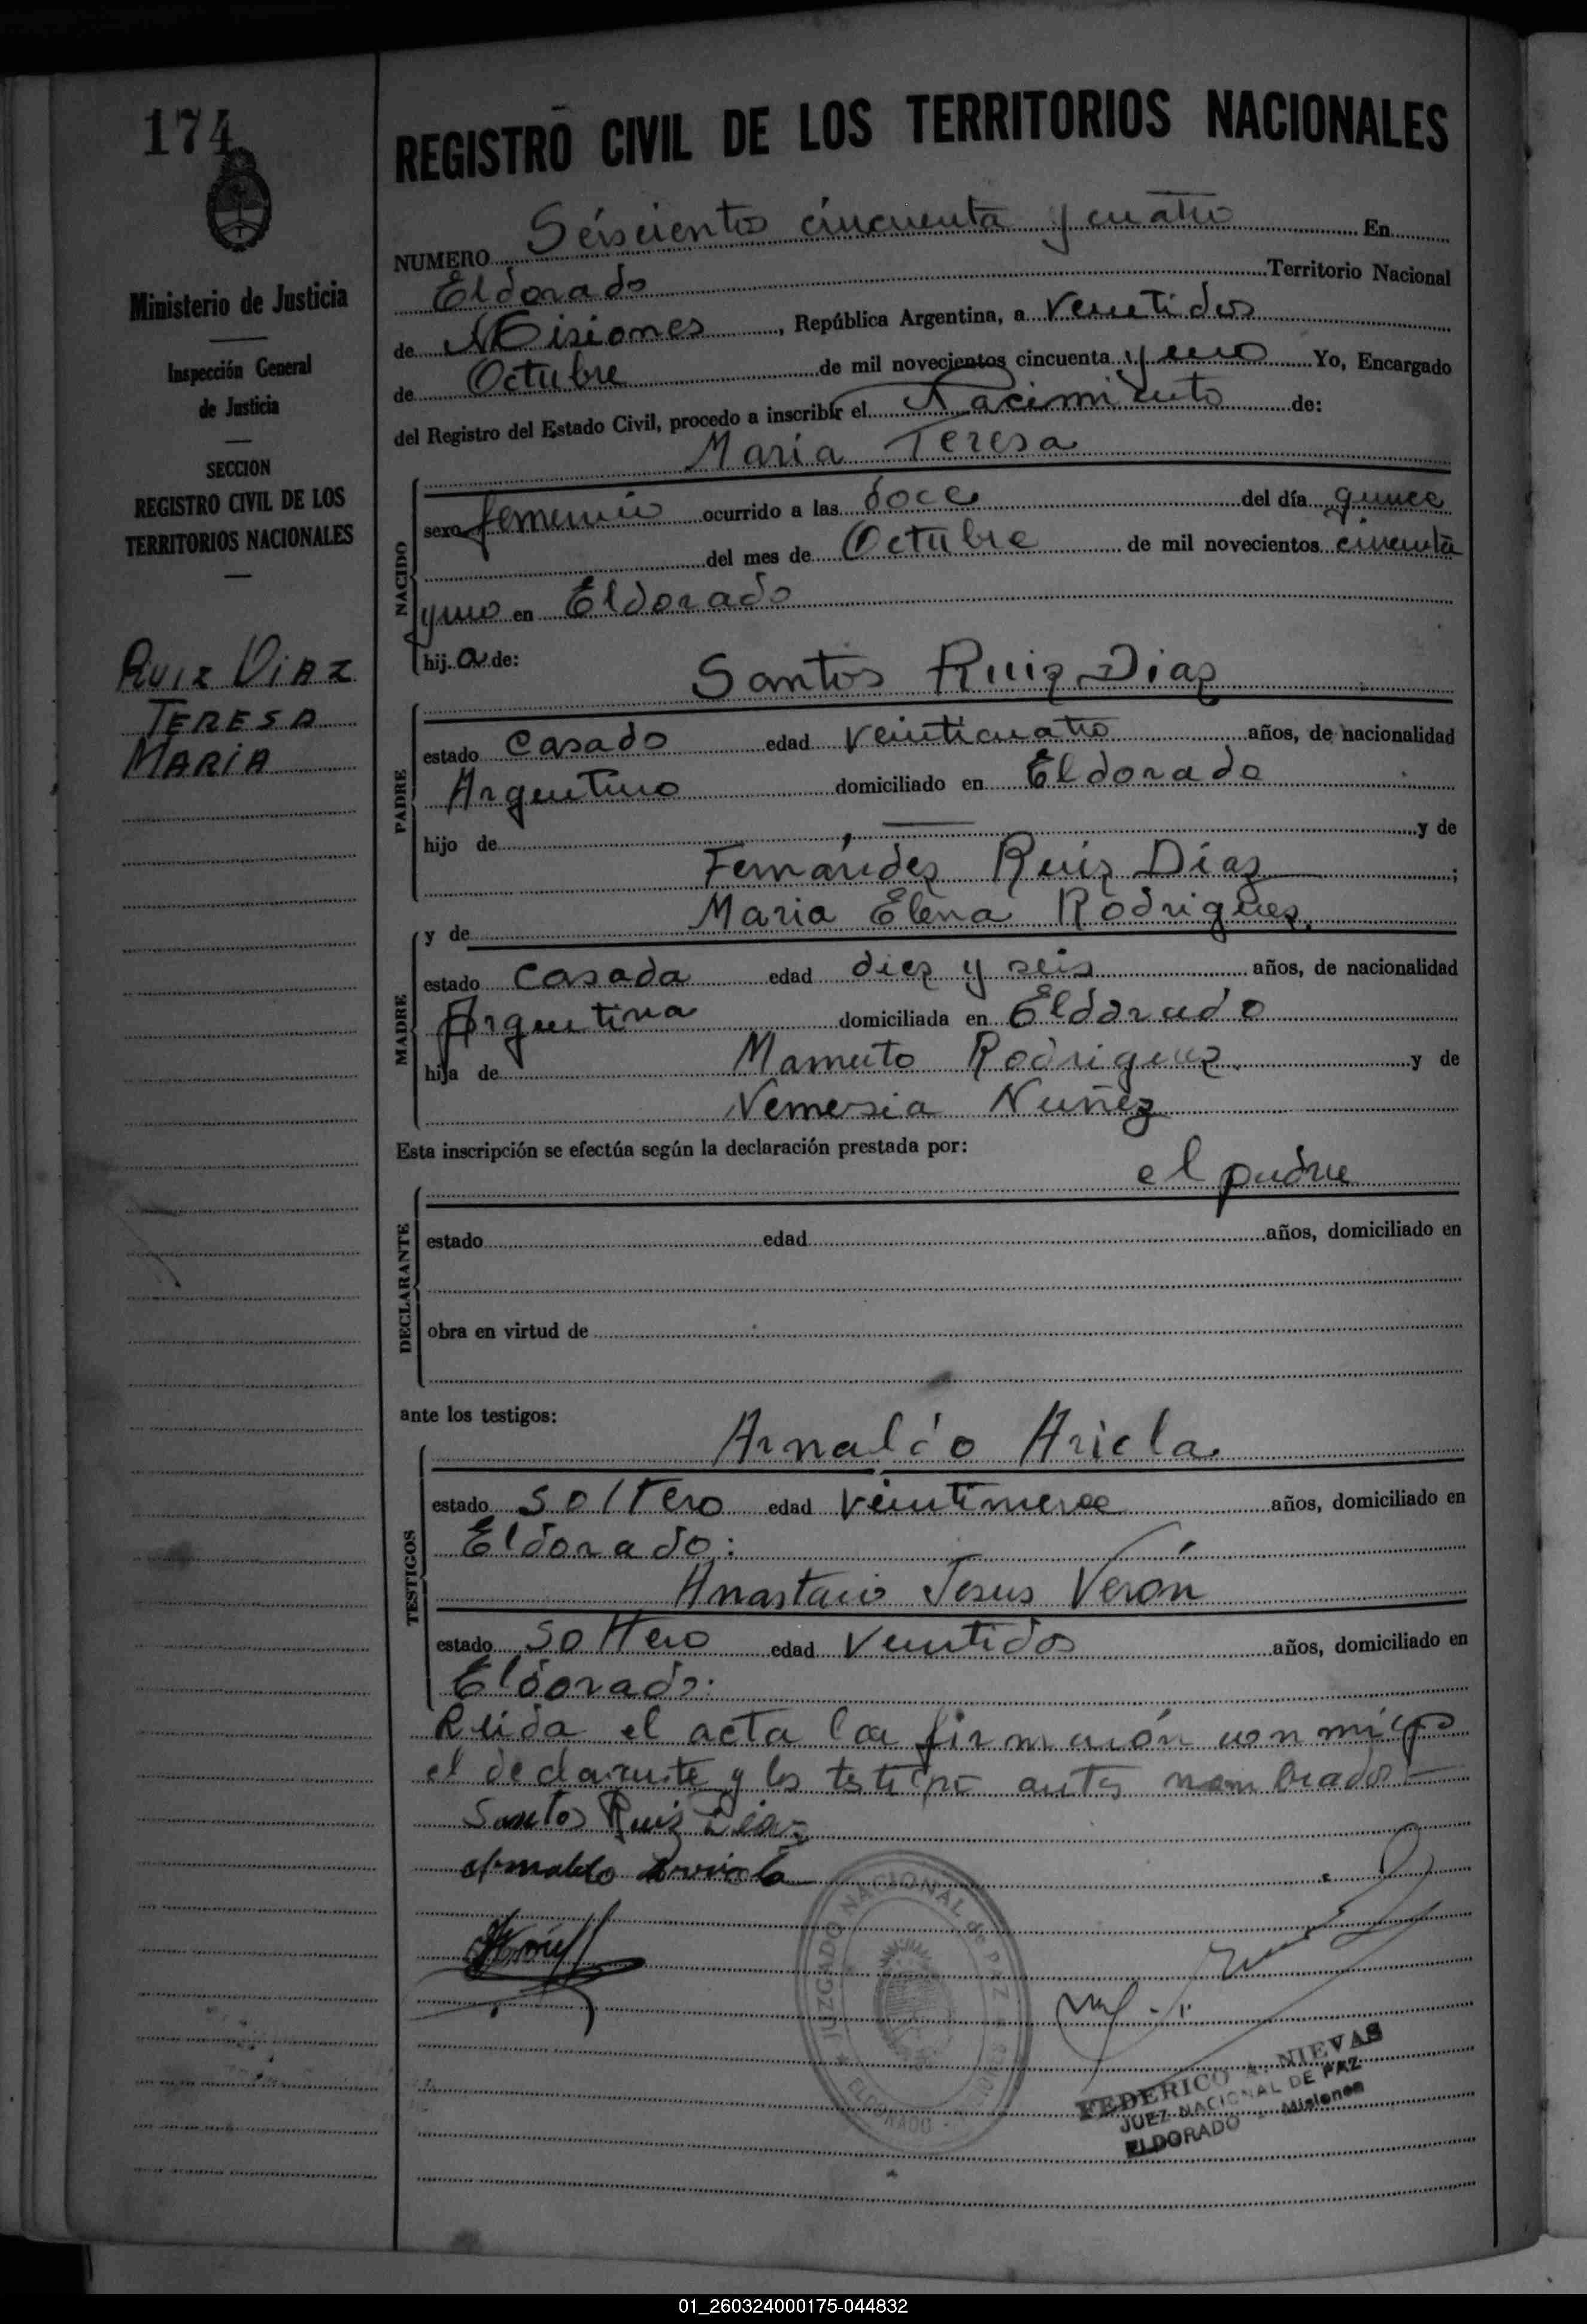 174
Ministerio de Justicia
Inspección General
de Justicia
SECCION
REGISTRO CIVIL DE LOS
TERRITORIOS NACIONALES
RUIZ DIAZ
TERESA
MARIA
REGISTRO CIVIL DE LOS TERRITORIOS NACIONALES
NUMERO Seiscientos cincuenta y cuatro En
Eldorado Territorio Nacional
de Misiones, República Argentina, a Veintidos
de Octubre de mil novecientos cincuenta y uno Yo, Encargado
del Registro del Estado Civil, procedo a inscribir el Nacimiento de:
María Teresa
NACIDO
sexo femenino ocurrido a las doce del día quince
del mes de Octubre de mil novecientos cincuenta
y uno en Eldorado
hij a de:
Santos Ruiz Diaz
PADRE
estado Casado edad Veinticuatro años, de nacionalidad
Argentino domiciliado en Eldorado
hijo de y de
Fernández Ruiz Díaz;
y de Maria Elena Rodrigues
MADRE
estado Casada edad diez y seis años, de nacionalidad
Argentina domiciliada en Eldorado
hija de Rodriguez y de
Nemesia Nuñez
Esta inscripción se efectúa según la declaración prestada por:
el padre
DECLARANTE
estado edad años, domiciliado en
obra en virtud de
ante los testigos:
Arnaldo
TESTIGOS
estado Soltero edad años, domiciliado en
Eldorado:
Anastacio Jesus Verón
estado Soltero edad Veintidos años, domiciliado en
Eldorado:
el acta la con
el declarante y los testigos antes nombrados
Santos Ruiz Diaz
JUZGADO NACIONAL de PAZ
ELDORADO
FEDERICO A. NIEVAS
JUEZ NACIONAL DE PAZ
ELDORADO - Misiones
01_260324000175-044832